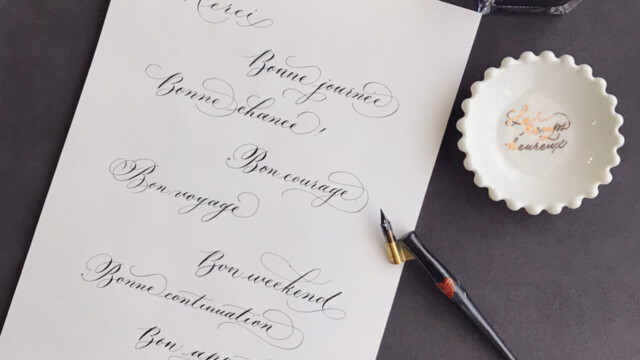 Merci
Bonne journée
Bonne chance,
Bon courage
Bon voyage
Bon weekend
Bonne continuation
Bon
Les
temps
heureux